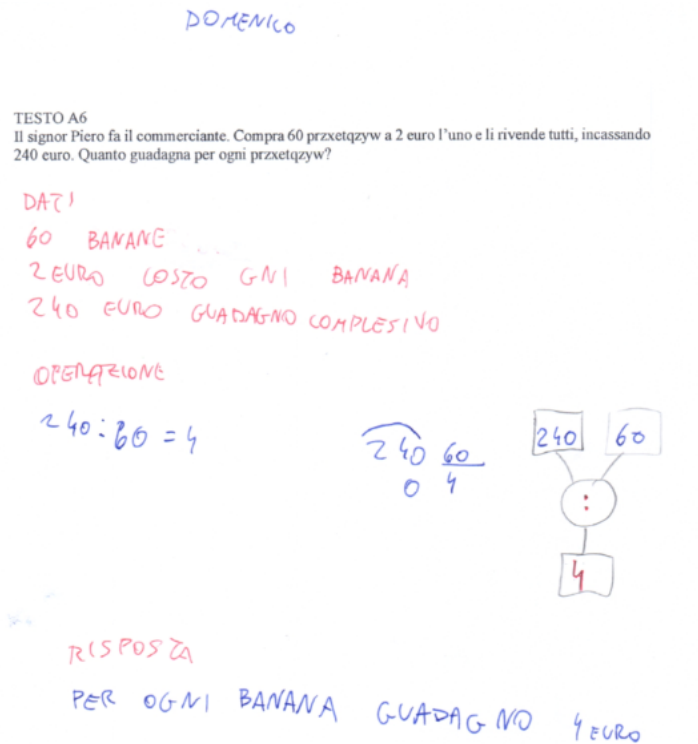 DOMENICO
TESTO A6
Il signor Piero fa il commerciante. Compra 60 przxetqzyw a 2 euro l'uno e li rivende tutti, incassando
240 euro. Quanto guadagna per ogni przxetqzyw?
DATI
60 BANANE
2 EURO COSTO GNI BANANA
240 EURO GUADAGNO COMPLESIVO
OPERAZIONE
240:60=4
240 60
0 4
240 60
:
4
RISPOSTA
PER OGNI BANANA GUADAGNO 4 EURO